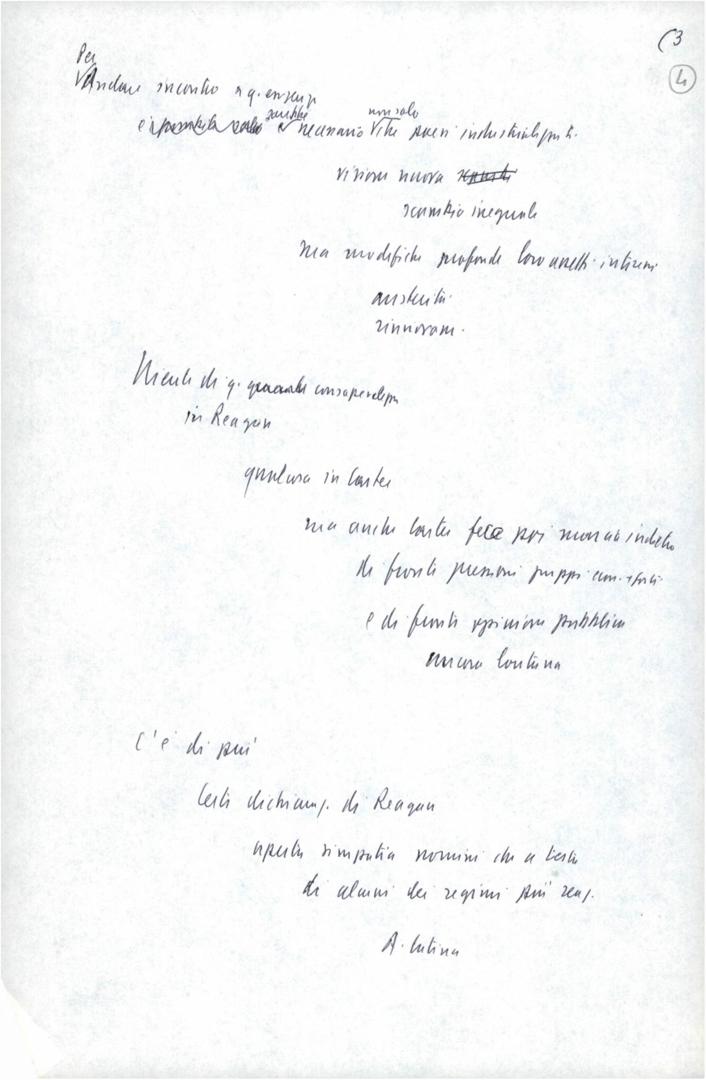 (3
4
Per
Andare incontro a q. esigenz
è necessario che paesi industrializzati
non solo
visione nuova
scambio ineguale
ma modifiche profonde loro assetti interni
austerità
rinnovam.
Niente di q. consapevolezza
in Reagan
qualcosa in Carter
ma anche Carter fece poi marcia indietro
di fronte pressioni gruppi econ. + forti
e di fronte opinione pubblica
ancora lontana
C'è di più
Certe dichiaraz. di Reagan
aperta simpatia uomini che a testa
di alcuni dei regimi più reaz.
A. Latina